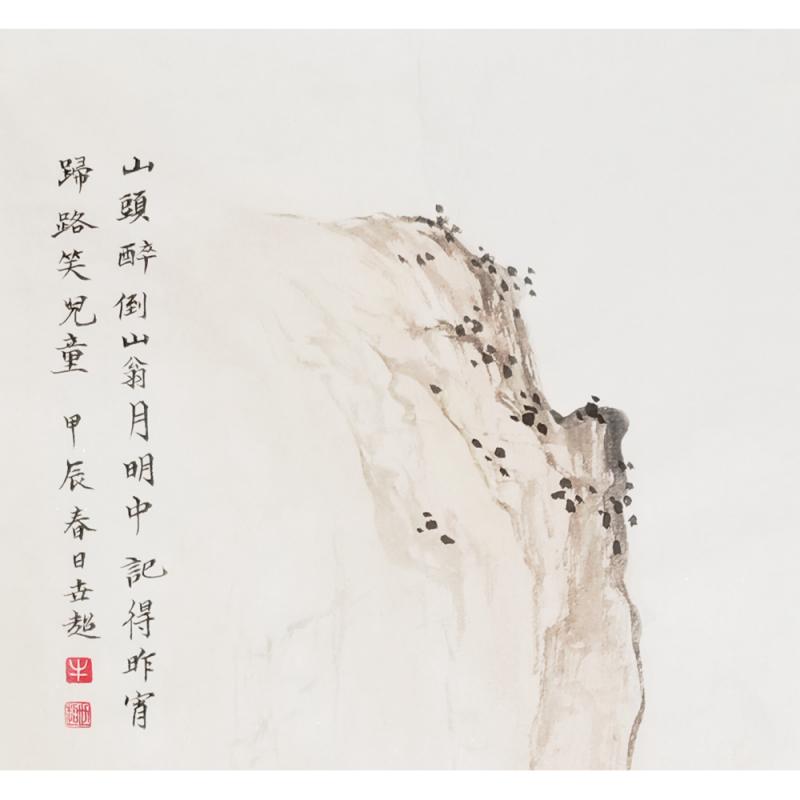 山頭醉倒山翁月明中記得昨宵
歸路笑兒童 甲辰春日世超
牛
世超